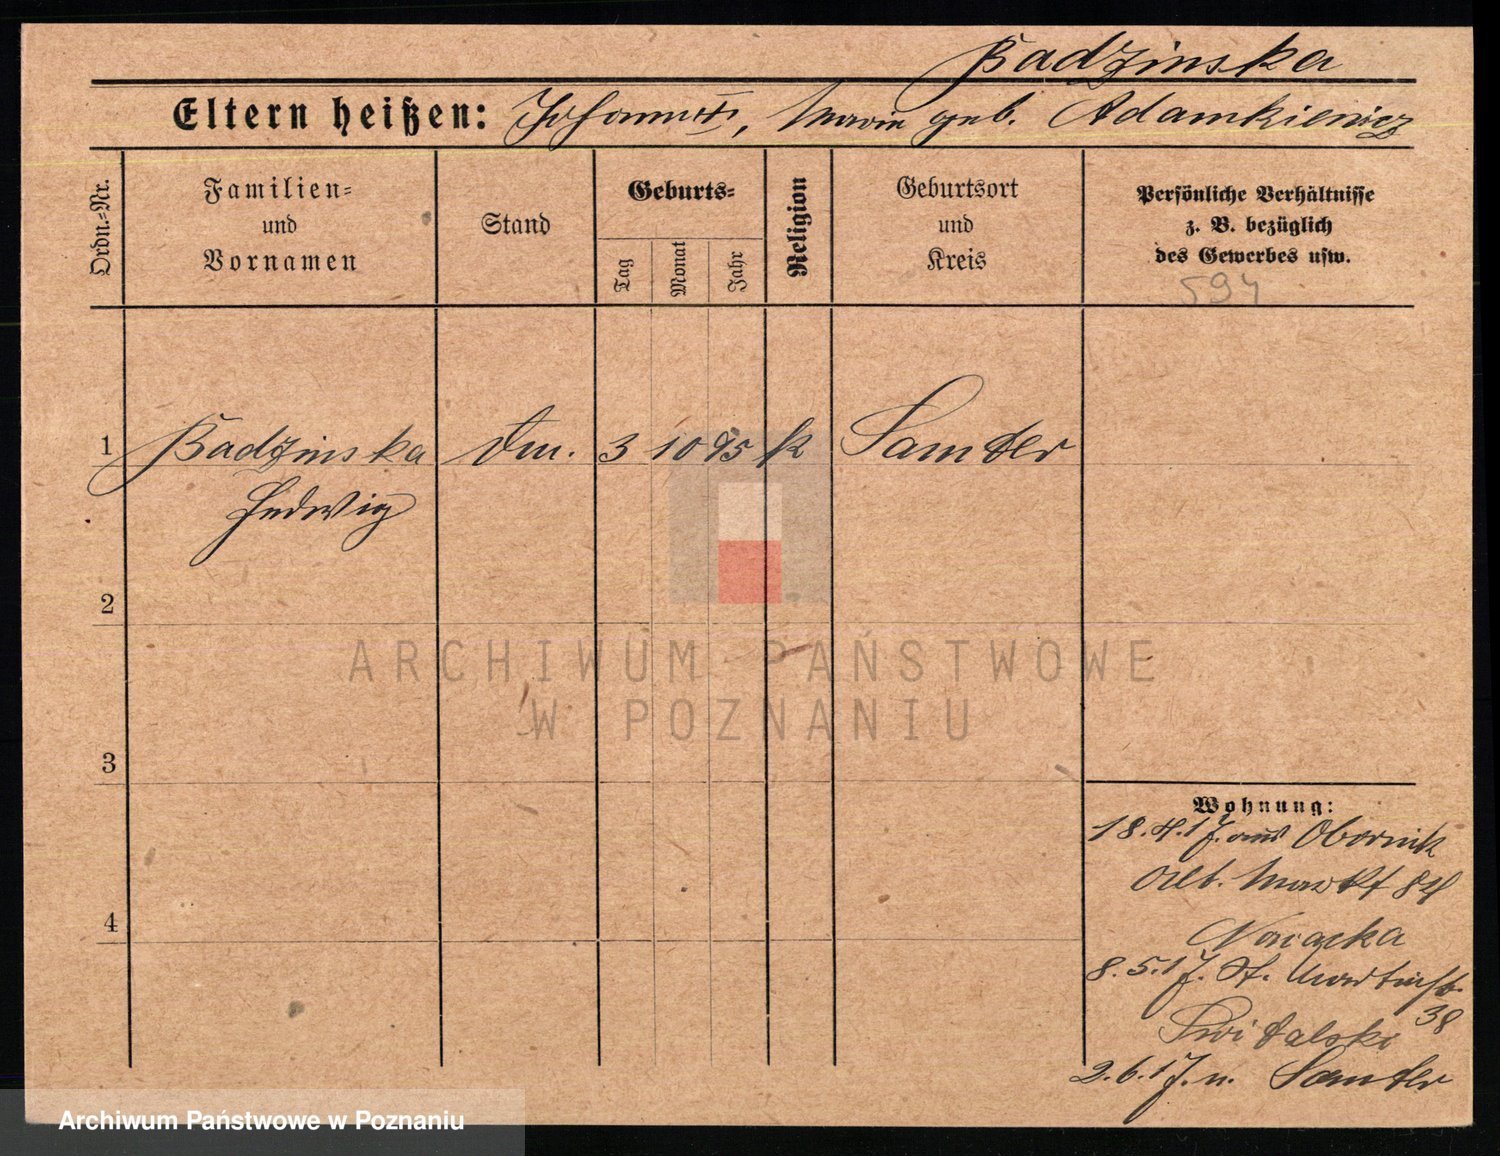 Badzinska
Eltern heißen: Johann, Marie geb. Adamkiewicz
Ordn.-Nr.
Familien-
und
Vornamen
Stand
Geburts-
Tag
Monat
Jahr
Religion
Geburtsort
und
Kreis
Persönliche Verhältnisse
z. B. bezüglich
des Gewerbes usw.
594
1 Badzinska 3 10 95 k Samter
Hedwig
2
3
4
Wohnung:
18.4.17. aus Obornik
Alt. Markt 84
8.5.17. St. Martinstr.
38
Switalski
2.6.17. n. Samter
ARCHIWUM PAŃSTWOWE
W POZNANIU
Archiwum Państwowe w Poznaniu